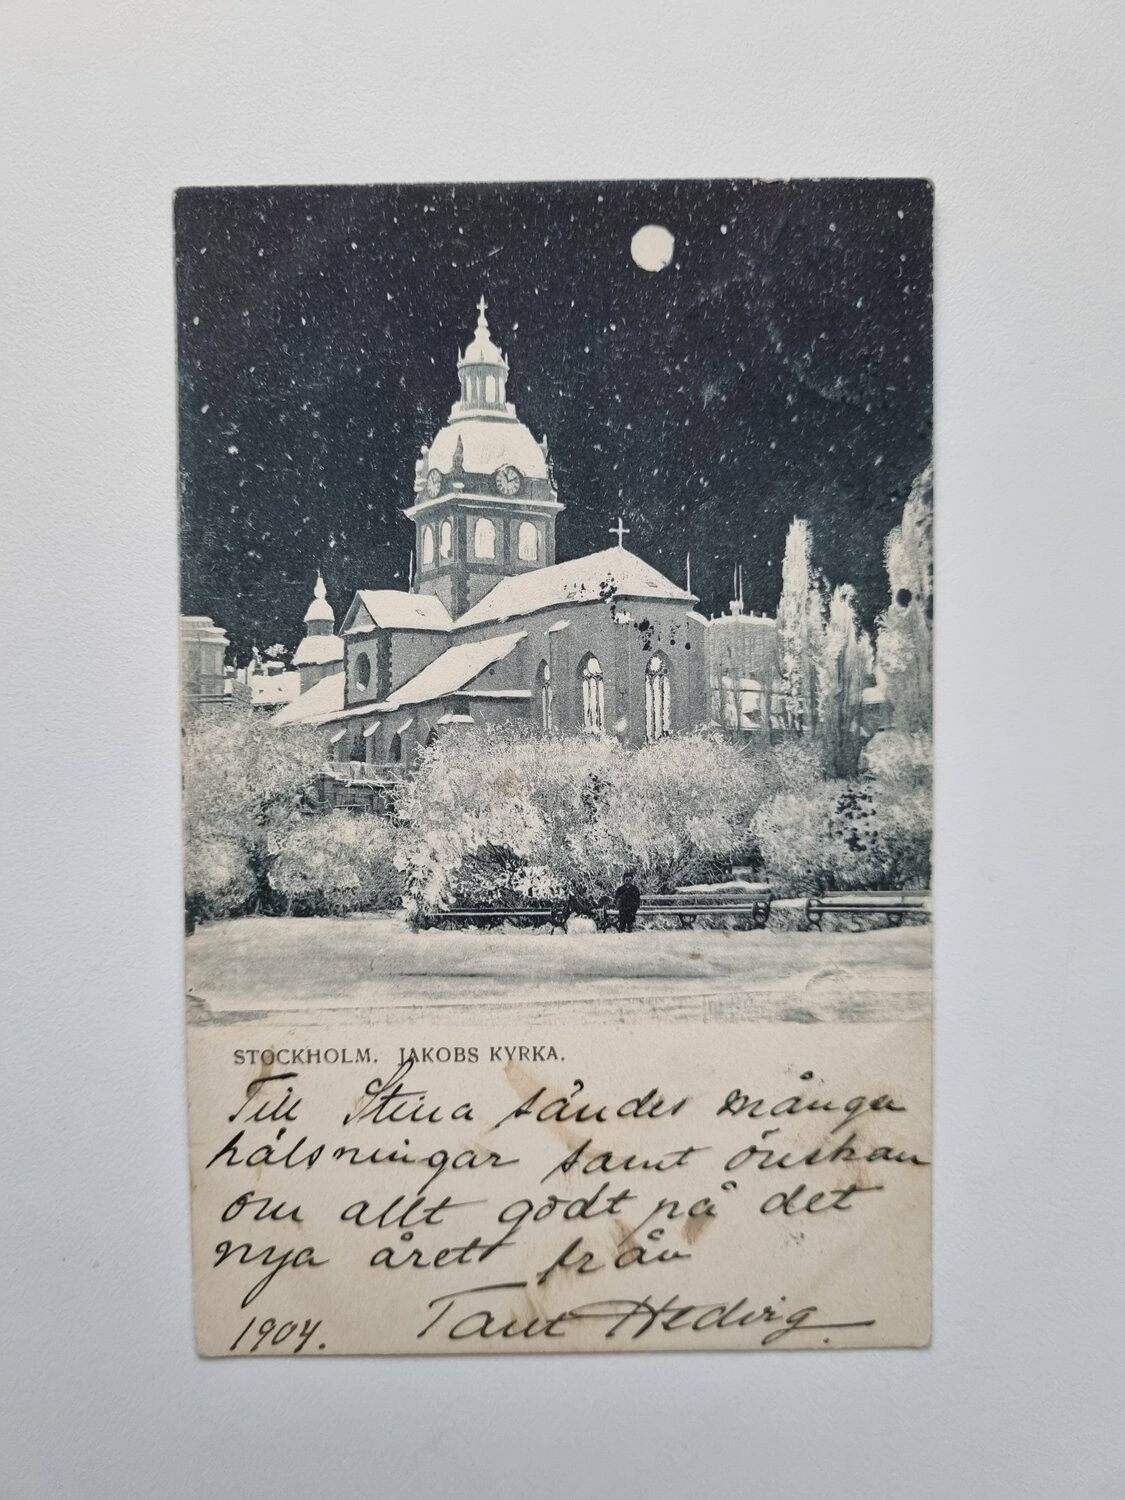 STOCKHOLM. JAKOBS KYRKA.
Till Stina sändes många
hälsningar samt önskan
om allt godt på det
nya året från
1904. Tant Hedvig.